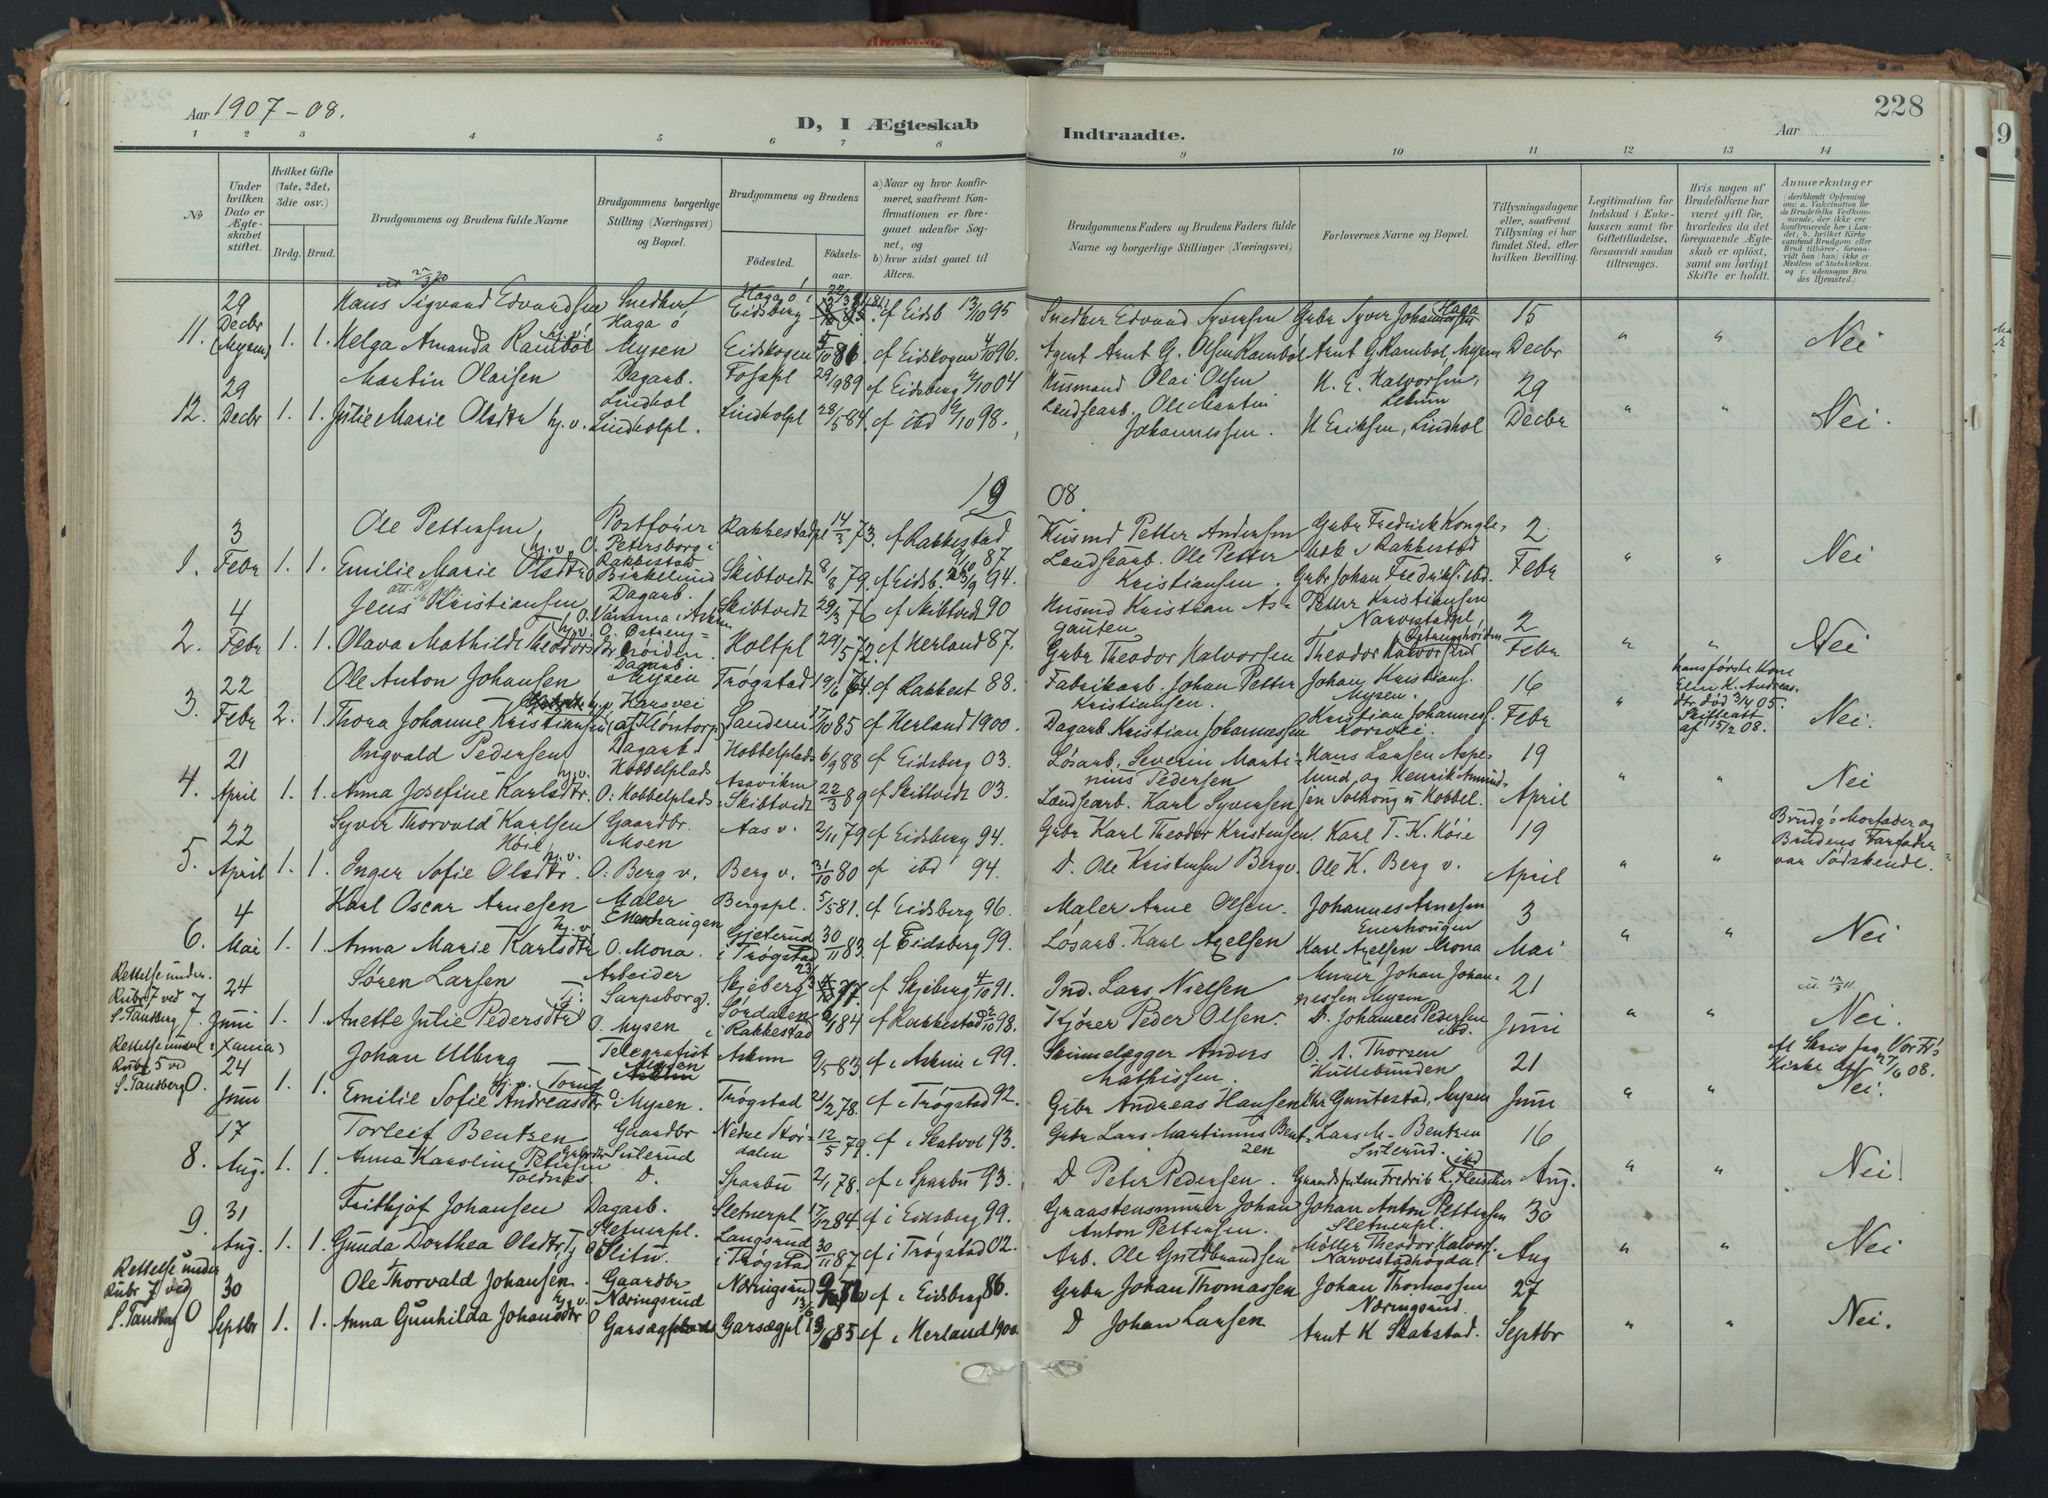 Aar 1907-08.
D, I Ægteskab
Indtraadte.
Aar
228
1 2 3 4 5 6 7 8 9 10 11 12 13 14
No
Under hvilken Dato er Ægteskabet stiftet.
Hvilket Gifte (1ste, 2det, 3die osv.)
Brdg. Brud.
Brudgommens og Brudens fulde Navne
Brudgommens borgerlige Stilling (Næringsvei) og Bopæl.
Brudgommens og Brudens
Fødested.
Fødselsaar.
a) Naar og hvor konfirmeret, saafremt Konfirmationen er foregaaet udenfor Sognet, og
b) hvor sidst gaaet til Alters.
Brudgommens Faders og Brudens Faders fulde Navne og borgerlige Stillinger (Næringsvei)
Forlovernes Navne og Bopæl.
Tillysningsdagene eller, saafremt Tillysning ei har fundet Sted, efter hvilken Bevilling.
Legitimation for Indskud i Enkekassen samt for Giftetilladelse, forsaavidt saadan tiltrænges.
Hvis nogen af Brudefolkene har været gift før, hvorledes da det foregaaende Ægteskab er opløst, samt om lovligt Skifte er holdt.
Anmærkninger
29 Hans Sigvand Edvardsen Snedker, Haga ø i Eidsberg cf Eidsb 13/10 95 Snedker Edvand Syversen Gubr Syver Johannessen Haga 15
11. Decbr (Mysen) 1. 1. Helga Amanda Rambøl hj. v. Mysen Eidskogen 5/10 86 cf Eidskogen 4/10 96. Agent Arnt G. Olsen Rambøl Arnt G Rambøl, Mysen Decbr " " Nei
29 Martin Olaisen Dagarb. Lindhol Fosspl 29/9 89 cf Eidsberg 2/10 04 Husmand Olai Olsen H. E. Halvorsen, Letum 29
12. Decbr 1. 1. Julie Marie Olsdtr hj. v. Lindholpl. Lindholpl 28/5 84. cf ibd 2/10 98. Landsearb. Ole Martin Johannessen. H Eriksen, Lindhol Decbr " " Nei.
1908.
3 Ole Pettersen Postfører Petersborg i Rakkestad Rakkestadpl 14/3 73. cf Rakkestad 9/10 87 Husmd Petter Andersen Gubr Fredrick Kongle- 2
1. Febr 1. 1. Emilie Marie Olsdtr hj. v. O. Birkelund Skibtvedt 8/8 79. cf Eidsb. 23/9 94. Landsearb. Ole Petter Kristiansen. Gubr Johan Fredriks. ibd. Febr " " Nei
4 Jens Kristiansen Dagarb. O. Vamma i Askim Skibtvedt 29/3 76 cf Skibtvedt 90 Husmd Kristian Asgauten Petter Kristiansen Narvestadpl, 2
2. Febr 1. 1. Olava Mathilde Theodors hj. v. O. Østreng- Høiden. Holtpl 29/5 72. cf Herland 87. Gubr Theodor Halvorsen Theodor Halvorsen Østrenghøiden Febr " " Nei
22 Ole Anton Johansen Dagarb. Mysen Trøgstad 19/6 64. cf Rakkest 88. Fabrikarb. Johan Petter Kristiansen. Johan Kristians. Mysen. 16 hans første Kone Eline K. Andreasdtr død 3/4 05. Skifteatt af 15/2 08.
3. Febr 2. 1. Thora Johanne Kristiansen hj. v. Karsvei (af Monstorp) Sandem 17/10 85 cf Herland 1900. Dagarb Kristian Johannessen Kristian Johanness. Korsvei. Febr " Nei.
21 Ingvald Pedersen Dagarb. Hobbelplads Hobbelplads 6/9 88 cf Eidsberg 03. Løsarb. Severin Martinius Pedersen Hans Larsen Aspelund og Henrik Amundsen Solhoug u Hobbel. 19
4. April 1. 1. Anna Josefine Karlsdtr. hj. v. O: Hobbelplads Aasvikm i Skibtvedt 22/3 89 cf Skibtvedt 03. Landsearb. Karl Syversen April " " Nei
22 Syver Thorvald Karlsen Høie Gaardbr. Moen Aas v. 2/11 79 cf Eidsberg 94. Gubr Karl Theodor Kristensen. Karl T. K. Høie 19 Brudg's Morfader og Brudens Farfader var Sødskende.
5. April 1. 1. Inger Sofie Olsdtr. hj. v. O: Berg v. Berg v. 31/10 80 cf ibd 94. D. Ole Kristensen Berg v. Ole K. Berg v. April " "
4 Karl Oscar Arnesen Maler Enerhaugen Bergspl. 5/5 81. cf Eidsberg 96. Maler Arne Olsen. Johannes Arnesen Enerhougen 3
6. Mai 1. 1. Anna Marie Karlsdtr hj. v. O. Mona. Gjeterud i Trøgstad 30/11 83. cf Eidsberg 99. Løsarb. Karl Axelsen Karl Axelsen Mona Mai " " Nei
Rettelse under Rubr 7 ved S. Tandberg
24 Søren Larsen Arbeider Sarpsborg. Skjeberg cf Skjeberg 4/10 91. Ind. Lars Nielsen Murer Johan Johannessen Mysen 21
7. Juni 1. 1. Anette Julie Pedersdtr O. Mysen Sørdalen i Rakkestad 84 cf Rakkestad 2/10 98. Kjører Peder Olsen. D. Johannes Pedersen ibd. Juni " " Nei.
Rettelse under Rubr 5 ved S. Tandberg
24 (Xania) Johan Ulberg Telegrafist Mysen Askim 9/5 83 cf i Askim 99. Skinnelægger Anders Mathissen. O. A. Thorsen Kullebunden 21 Al Skriv fra Vor Fr's Kirke dat 27/6 08.
O. Juni 1. 1. Emilie Sofie Andreasdtr hj. v. Torud O: Mysen. Trøgstad 21/2 78. cf i Trøgstad 92. Gubr Andreas Hansen Mysen Juni " " Nei.
17 Torleif Bentzen Gaardbr Suterud Nedre Stordalen 12/5 79. cf i Skatvol 93. Gubr Lars Martinius Bentzen Lars M. Bentzen Suterud. 16
8. Aug. 1. 1. Anna Karoline Petersen D. Sparbu 2/1 78. cf i Sparbu 93. D Peter Pedersen. Fredrik L. Fleischer ibd Aug. " " Nei
31 Frithjof Johansen Dagarb. Sletnerpl. Sletnerpl 17/12 84. cf i Eidsberg 99. Graastensmurer Johan Anton Pettersen. Johan Anton Pettersen Sletnerpl. 30
9. Aug. 1. 1. Gunda Dorthea Olsdtr Tj O Slitu. Langsrud i Trøgstad 30/11 87 cf i Trøgstad 02. Arb. Ole Guldbrandsen Møller Theodor Halvors. Narvestadhøgda Aug " " Nei
Rettelse under Rubr 7 ved S. Tandberg
30 Ole Thorvald Johansen. Gaardbr Næringsrud Næringsrud cf i Eidsberg 86. Gubr Johan Thomassen Johan Thomassen Næringsrud. 27
O Septbr 1. 1. Anna Gunhilda Johansdtr hj. v. O Garsæg Garsægpl 85 cf i Herland 1900. D Johan Larsen Arnt K Skakstad. Septbr " " Nei.